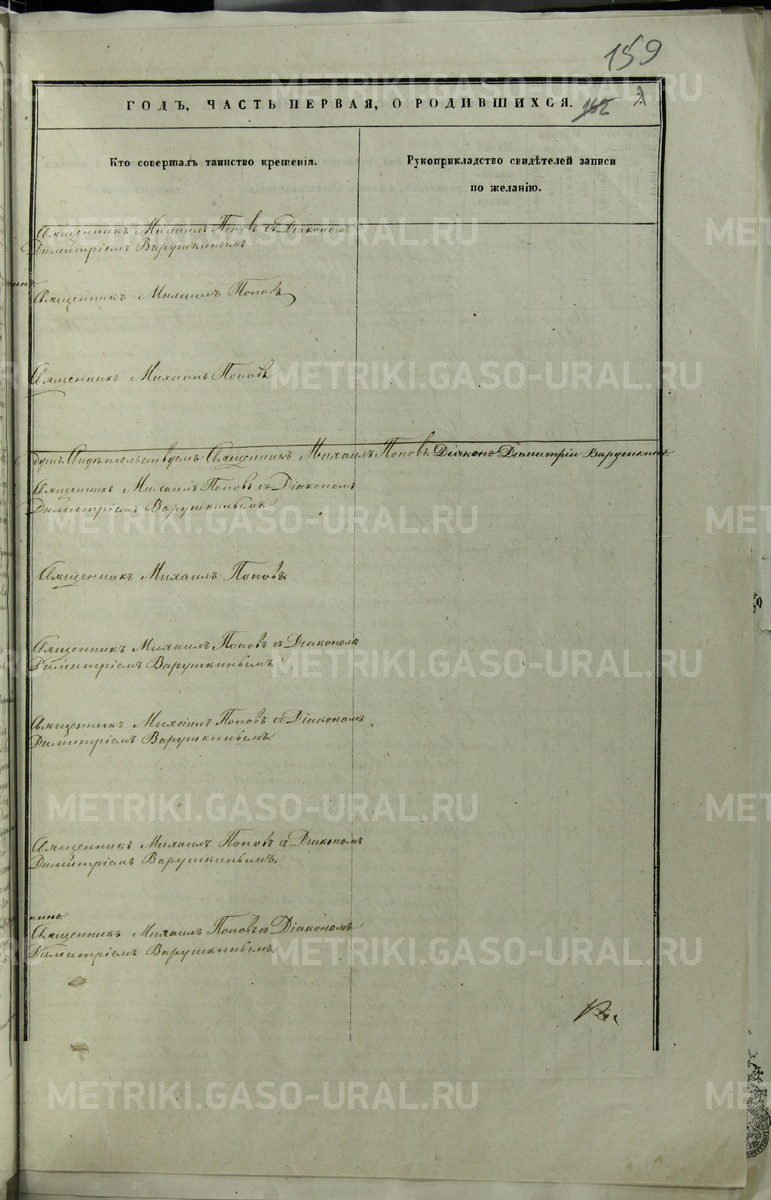 159
ГОДЪ, ЧАСТЬ ПЕРВАЯ, О РОДИВШИХСЯ.
Кто совершалъ таинство крещенія.
Рукоприкладство свидѣтелей записи
по желанію.
Священникъ Михаилъ Поповъ съ Діакономъ
Димитріемъ Варушкинымъ
Священникъ Михаилъ Поповъ
Священникъ Михаилъ Поповъ
Свидѣтельствуемъ Священникъ Михаилъ Поповъ Діаконъ Димитрій Варушкинъ
Священникъ Михаилъ Поповъ съ Діакономъ
Димитріемъ Варушкинымъ
Священникъ Михаилъ Поповъ.
Священникъ Михаилъ Поповъ съ Діакономъ
Димитріемъ Варушкинымъ.
Священникъ Михаилъ Поповъ съ Діакономъ
Димитріемъ Варушкинымъ.
Священникъ Михаилъ Поповъ съ Діакономъ
Димитріемъ Варушкинымъ.
Священникъ Михаилъ Поповъ съ Діакономъ
Димитріемъ Варушкинымъ.
METRIKI.GASO-URAL.RU